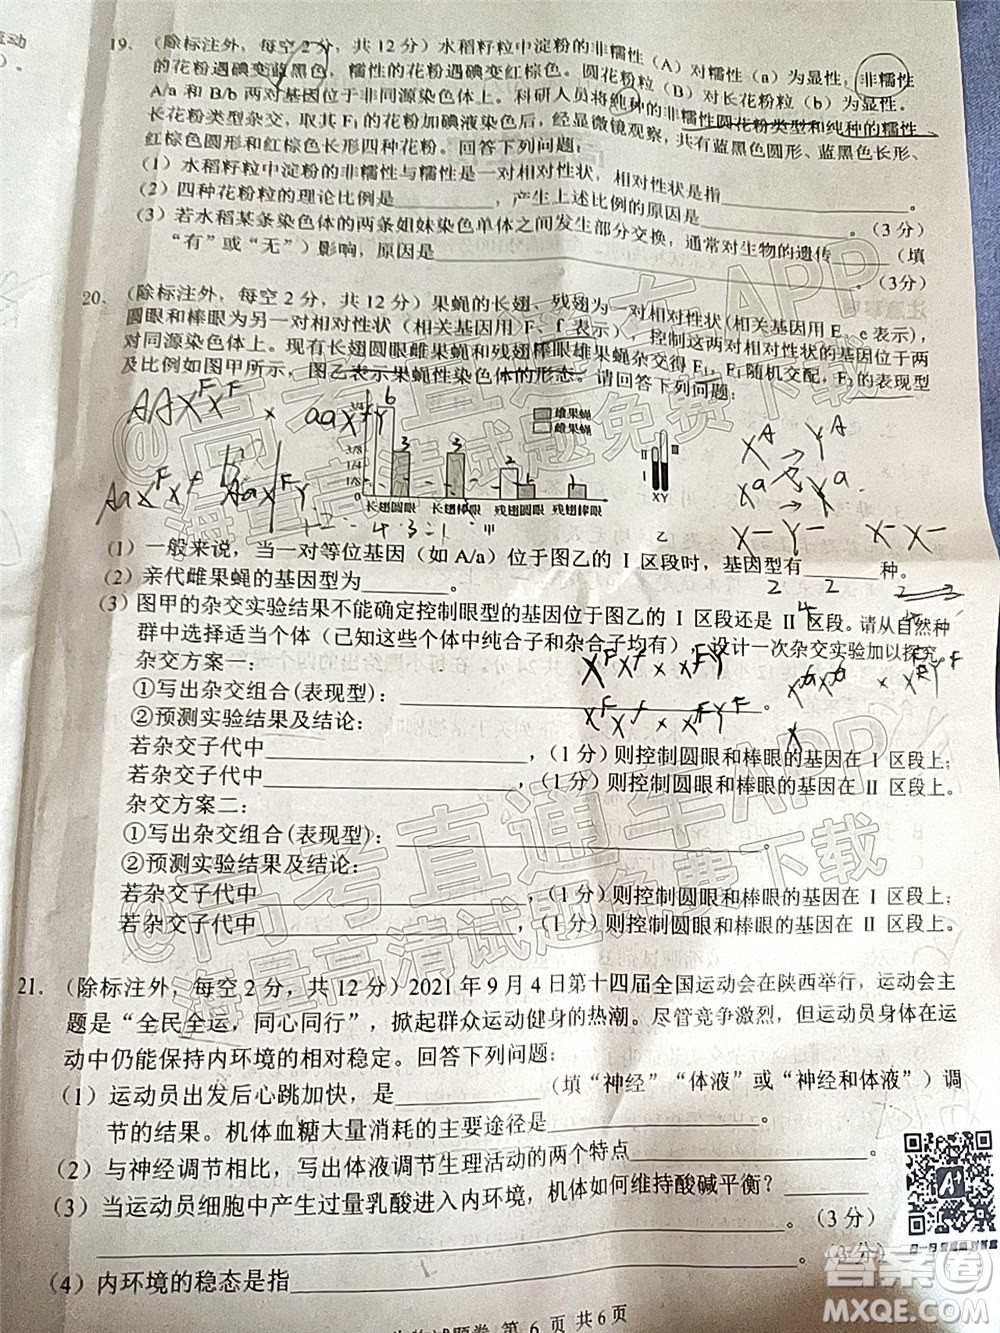 19. (除标注外，每空2分，共12分) 水稻籽粒中淀粉的非糯性 (A) 对糯性 (a) 为显性，非糯性
的花粉遇碘变蓝黑色，糯性的花粉遇碘变红棕色。圆花粉粒 (B) 对长花粉粒 (b) 为显性。
A/a 和 B/b 两对基因位于非同源染色体上。科研人员将纯种的非糯性圆花粉类型和纯种的糯性
长花粉类型杂交，取其 F₁ 的花粉加碘液染色后，经显微镜观察，共有蓝黑色圆形、蓝黑色长形、
红棕色圆形和红棕色长形四种花粉。回答下列问题：
(1) 水稻籽粒中淀粉的非糯性与糯性是一对相对性状，相对性状是指
。
(2) 四种花粉粒的理论比例是，产生上述比例的原因是。(3分)
(3) 若水稻某条染色体的两条姐妹染色单体之间发生部分交换，通常对生物的遗传(填
“有”或“无”) 影响，原因是。(3分)
20. (除标注外，每空2分，共12分) 果蝇的长翅、残翅为一对相对性状 (相关基因用 E、e 表示)，
圆眼和棒眼为另一对相对性状 (相关基因用 F、f 表示)，控制这两对相对性状的基因位于两
对同源染色体上。现有长翅圆眼雌果蝇和残翅棒眼雄果蝇杂交得 F₁，F₁ 随机交配，F₂ 的表现型
及比例如图甲所示，图乙表示果蝇性染色体的形态。请回答下列问题：
AAX^F X^F × aaX^f Y
雄果蝇
雌果蝇
3/8
1/4
1/8
6 3 3 2
长翅圆眼 长翅棒眼 残翅圆眼 残翅棒眼
甲
Ⅱ
Ⅰ
XY
乙
X^A Y^A
X^a Y^a
X⁻ Y⁻ X⁻ X⁻
(1) 一般来说，当一对等位基因 (如 A/a) 位于图乙的 Ⅰ 区段时，基因型有种。
(2) 亲代雌果蝇的基因型为。
(3) 图甲的杂交实验结果不能确定控制眼型的基因位于图乙的 Ⅰ 区段还是 Ⅱ 区段。请从自然种
群中选择适当个体 (已知这些个体中纯合子和杂合子均有)，设计一次杂交实验加以探究。
杂交方案一：
①写出杂交组合(表现型)：。
②预测实验结果及结论：
若杂交子代中，(1分) 则控制圆眼和棒眼的基因在 Ⅰ 区段上；
若杂交子代中，(1分) 则控制圆眼和棒眼的基因在 Ⅱ 区段上。
杂交方案二：
①写出杂交组合(表现型)：。
②预测实验结果及结论：
若杂交子代中，(1分) 则控制圆眼和棒眼的基因在 Ⅰ 区段上；
若杂交子代中，(1分) 则控制圆眼和棒眼的基因在 Ⅱ 区段上。
21. (除标注外，每空2分，共12分) 2021年9月4日第十四届全国运动会在陕西举行，运动会主
题是“全民全运，同心同行”，掀起群众运动健身的热潮。尽管竞争激烈，但运动员身体在运
动中仍能保持内环境的相对稳定。回答下列问题：
(1) 运动员出发后心跳加快，是(填“神经”“体液”或“神经和体液”) 调
节的结果。机体血糖大量消耗的主要途径是。
(2) 与神经调节相比，写出体液调节生理活动的两个特点。
(3) 当运动员细胞中产生过量乳酸进入内环境，机体如何维持酸碱平衡？
。(3分)
(4) 内环境的稳态是指。(3分)
第 6 页 共6页
@高考直通车APP
海量高清试题免费下载
答案圈
MXQE.COM